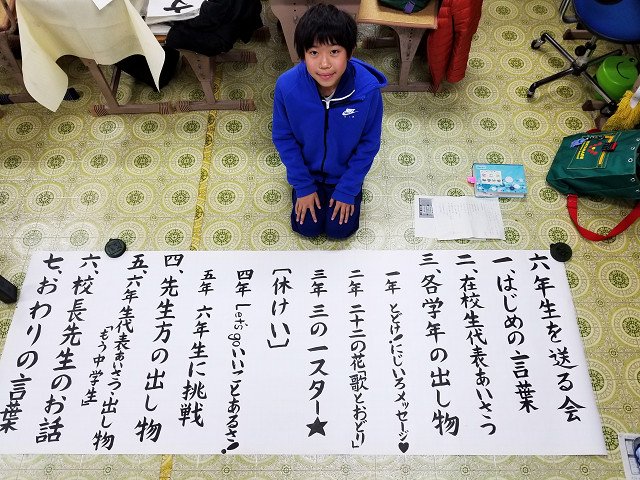 六年生を送る会
一、はじめの言葉
二、在校生代表あいさつ
三、各学年の出し物
一年 とどけ!にじいろメッセージ♥
二年 二十二の花「歌とおどり」
三年 三の一スター★
〔休けい〕
四年 Let's go いいことあるさ!
五年 六年生に挑戦
四、先生方の出し物
五、六年生代表あいさつ・出し物
「もう中学生」
六、校長先生のお話
七、おわりの言葉